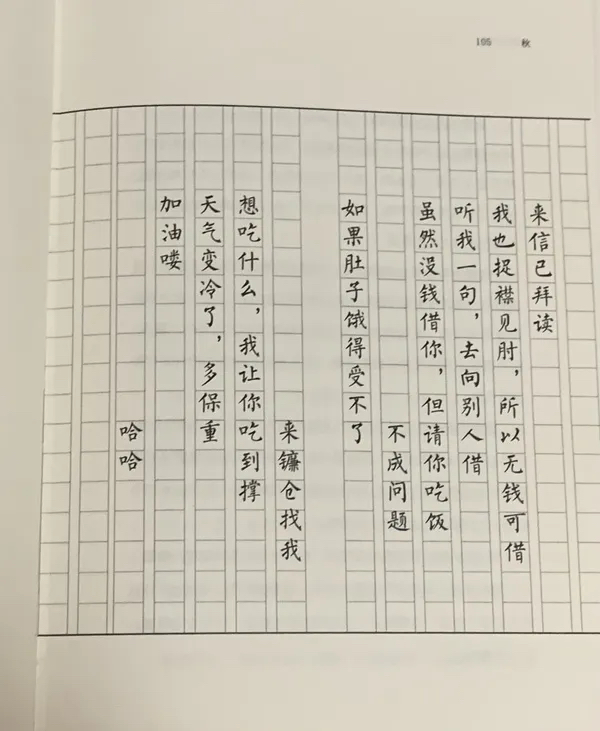 105 秋
来信已拜读
我也捉襟见肘，所以无钱可借
听我一句，去向别人借
虽然没钱借你，但请你吃饭
不成问题
如果肚子饿得受不了
来镰仓找我
想吃什么，我让你吃到撑
天气变冷了，多保重
加油喽
哈哈